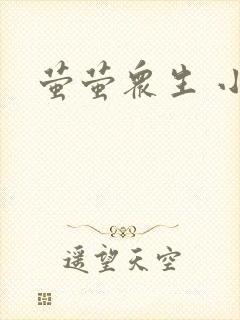 萤萤眾生 小
遥望天空